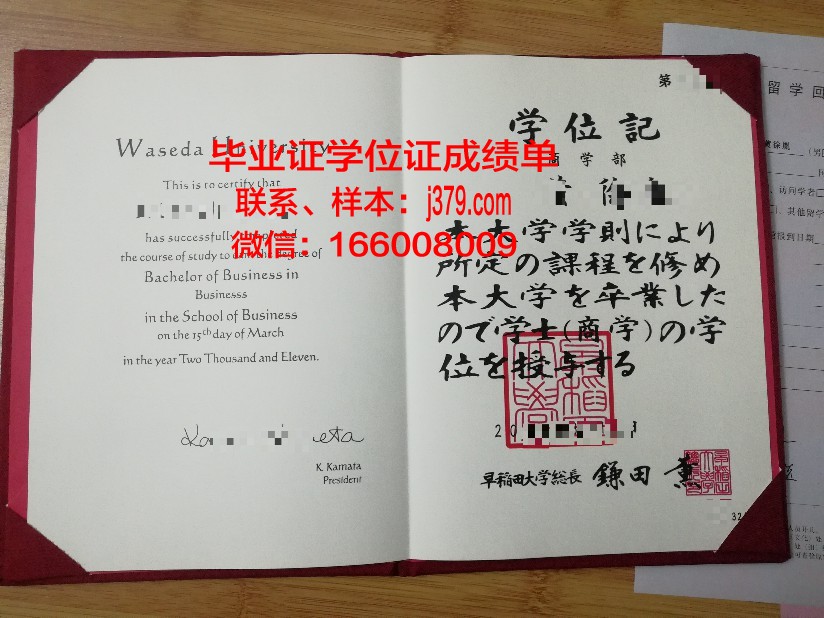 Waseda University
This is to certify that
has successfully
the course of study to of
Bachelor of Business in
Businesss
in the School of Business
on the 15th day of March
in the year Two Thousand and Eleven.
K. Kamata
President
毕业证学位证成绩单
联系、样本：j379.com
微信：166008009
第
学位記
商学部
本大学学則により
所定の課程を修め
本大学を卒業した
ので学士(商学)の学
位を授与する
20
早稲田大学総長 鎌田 薫
32
留学回
(男
访问学者
其他留学
报到日期